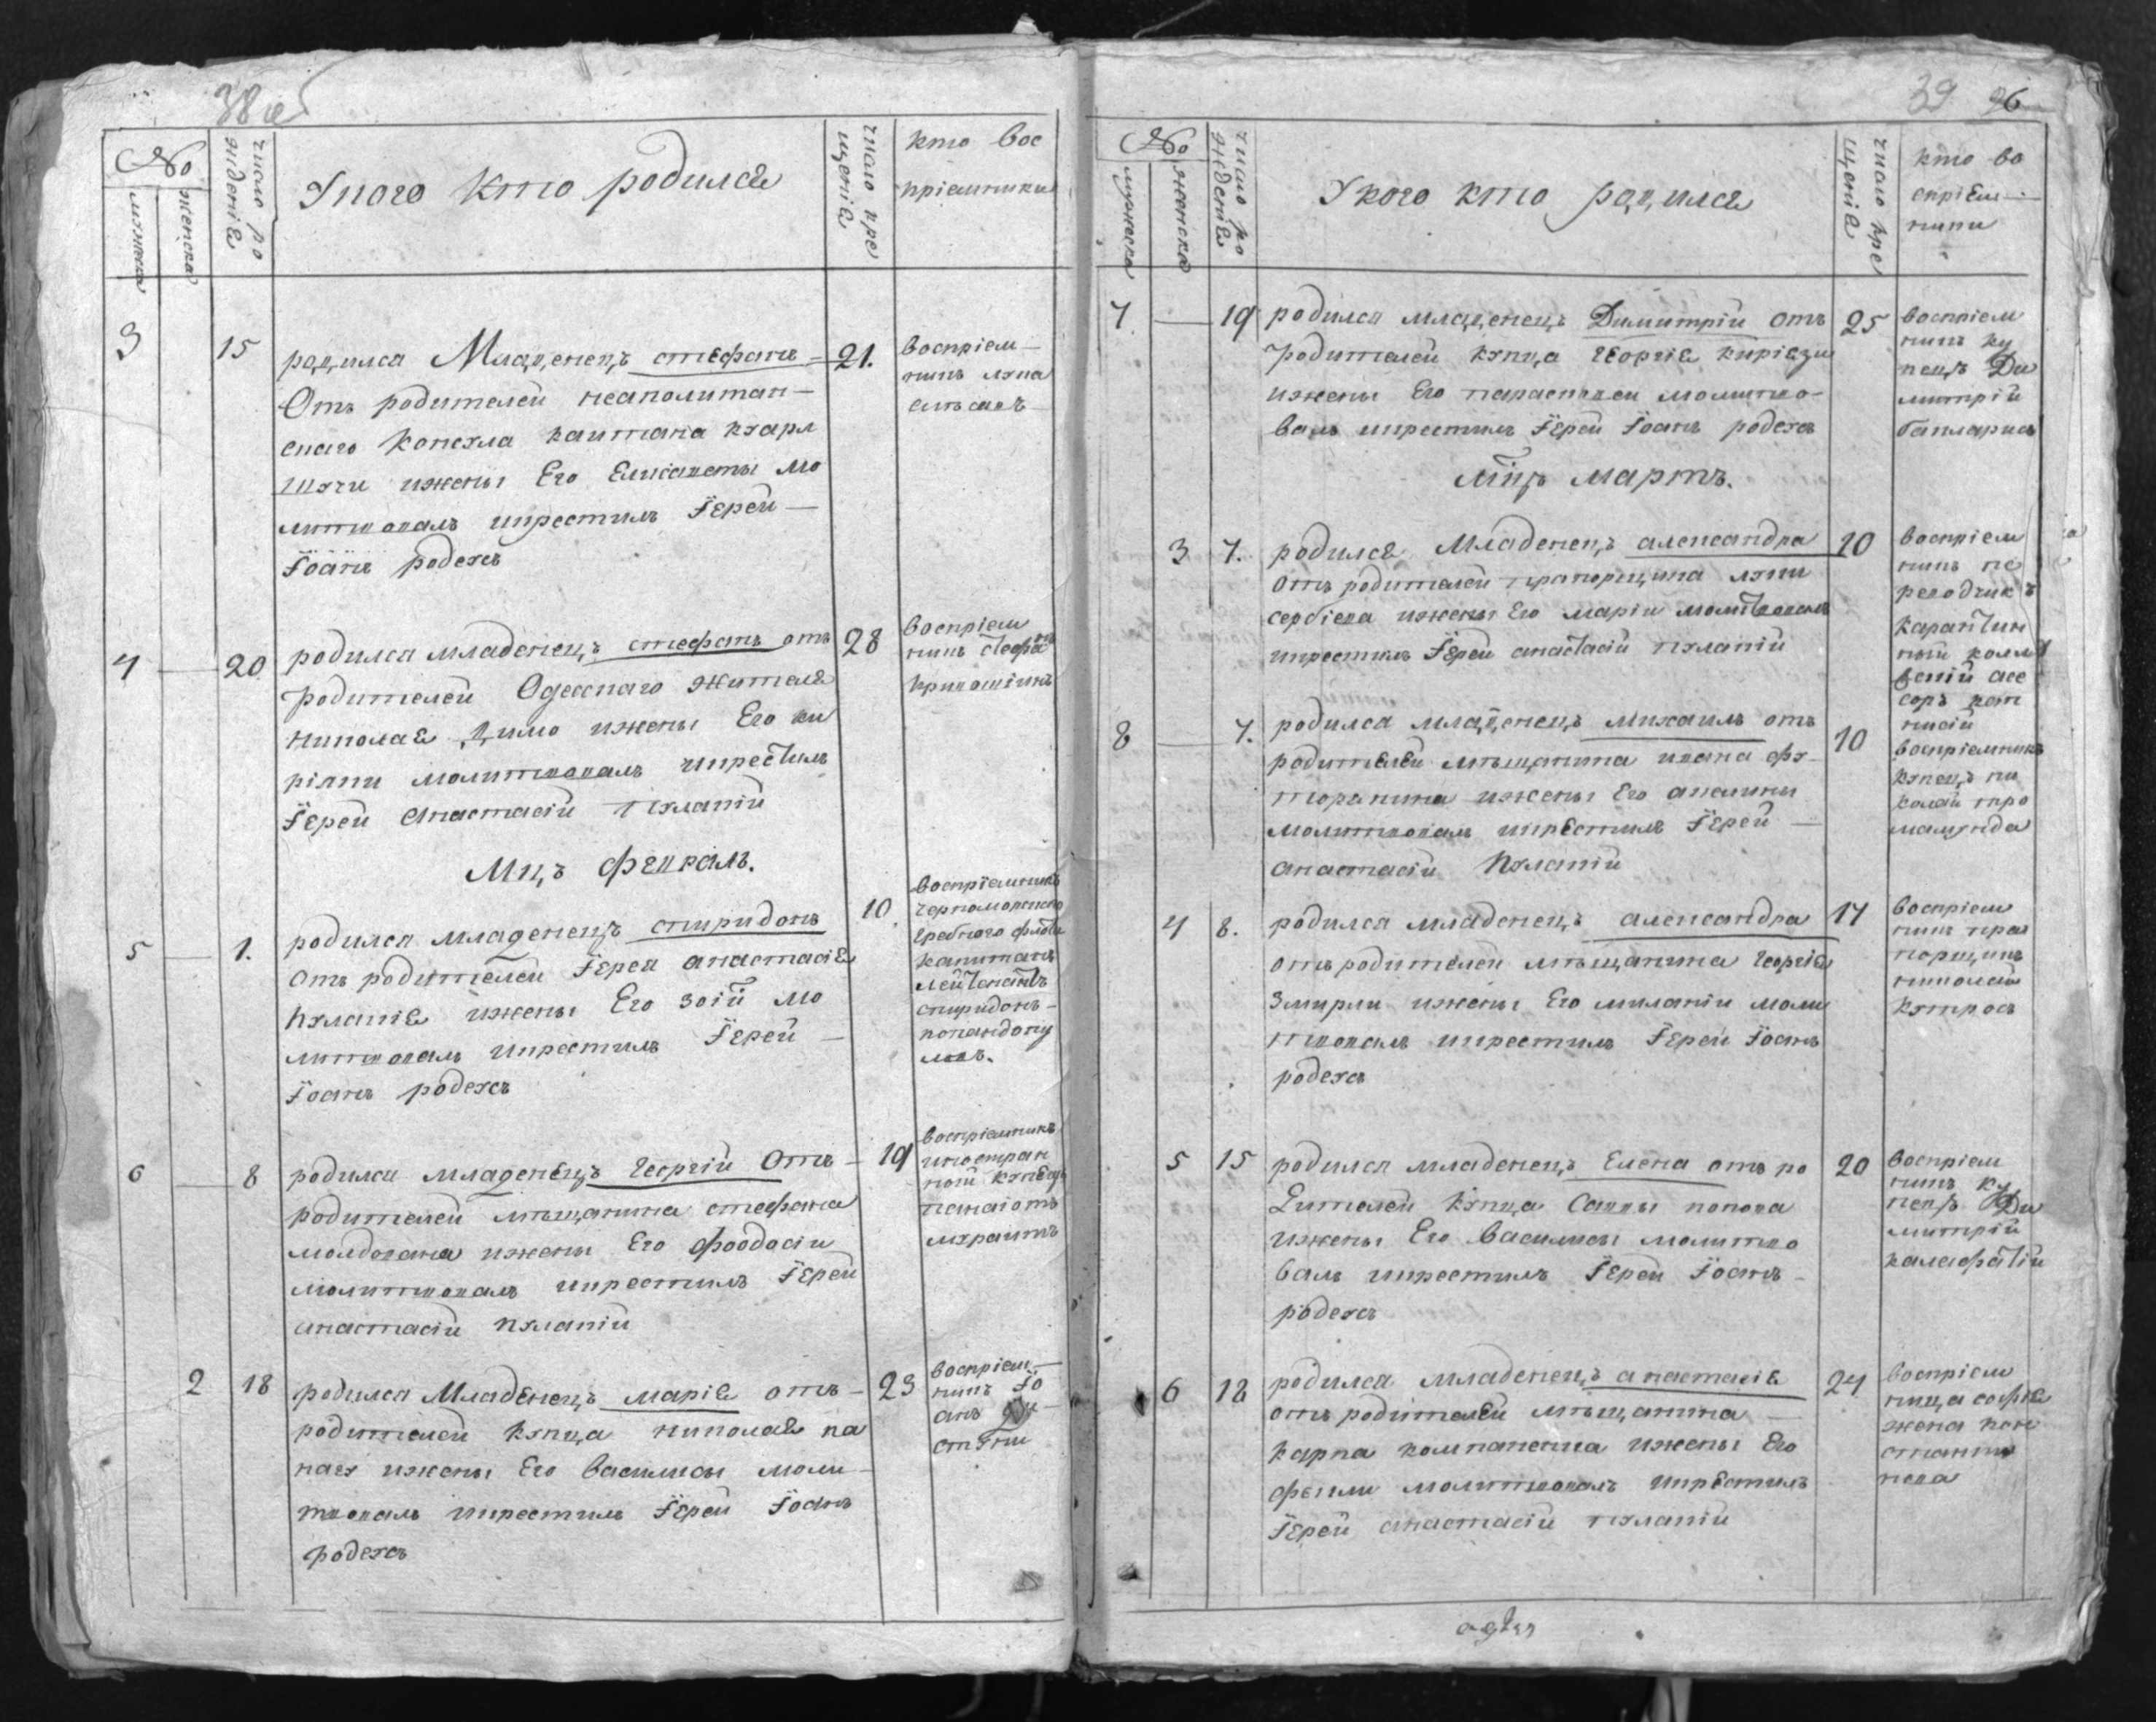 38 об
№
мужеска
женска
число ро
жденіѧ
У ного кто родилсѧ
число кре
щеніѧ
кто вос
пріемники
3
15
родилса Младенецъ стефанъ
21.
Отъ родителей неаполитан—
снаго консула
ижены Его Елисаветы мо
литвовалъ инрестилъ Їерей—
Їоанъ родусъ
воспріем—
нинъ
4
20
родилса младенецъ стефанъ отъ
28
родителей Одесснаго жителѧ
ниполаѧ димо ижены Его ки
ріяни молитвовалъ инрестилъ
Їерей Анастасій пуланій
воспріем
нинъ стефанъ
Мцъ февралъ.
5
1.
родилса младенецъ спиридонъ
10
отъ родителей Їереа анастасіѧ
пуланіѧ ижены Его зоій мо
литвовалъ инрестилъ Їерей—
Їоанъ родусъ
воспріемнинъ
черноморснаго
гребного флота
капитанъ
лейтенантъ
спиридонъ—
6
8
родилса младенецъ Георгій Отъ—
19
родителей мѣщанина стефана
молдована ижены Его феодосіи
молитвовалъ инрестилъ Їерей
анастасій пуланій
воспріемнинъ
иностран
ной купецъ
панаіотъ
2
18
родилса Младенецъ маріѧ отъ—
23
родителей купца ниполаѧ па
ижены Его василисы моли—
твовалъ инрестилъ Їерей Їоанъ
родусъ
воспріем—
нинъ Їо
анъ
39 96
№
мужеска
женска
число ро
жденіѧ
У кого кто родилсѧ
число кре
щеніѧ
кто во
спріем—
нини
7
19
родилса младенецъ Димитрій отъ
25
родителей купца Георгіѧ киріази
ижены Его параспивеи молитво—
валъ инрестилъ Їерей Їоанъ родусъ
воспріем
нинъ ку
пецъ Ди
митрій
Мцъ мартъ.
3
7.
родилсѧ младенецъ александра
10
отъ родителей прапорщина луни
сербіева ижены Его маріи молитвовалъ
инрестилъ Їерей анастасій пуланій
воспріем
нинъ пе
реводчикъ
карантин
ный колле
асе
соръ
8
7.
родилса младенецъ михаилъ отъ
10
родителей мѣщанина ивана фу—
ижены Его анелины
молитвовалъ инрестилъ Їерей—
анастасій пуланій
воспріемнинъ
купецъ ни
колай
4
8.
родилса младенецъ александра
17
отъ родителей мѣщанина Георгіѧ
змирли ижены Его миланіи моли
твовалъ инрестилъ Їерей Їоанъ
родусъ
воспріем
нинъ пра
порщинъ
ниполай
5
15
родилса младенецъ Елена отъ ро
20
дителей купца Саввы попова
ижены Его василисы молитво
валъ инрестилъ Їерей Їоанъ—
родусъ
воспріем
нинъ ку
пецъ Ди
митрій
калафатій
6
18
родилса младенецъ анастасіѧ
24
отъ родителей мѣщанина—
карпа ижены Его
молитвовалъ инрестилъ
Їерей анастасій пуланій
воспріем
ница софіѧ
жена кон
стантин